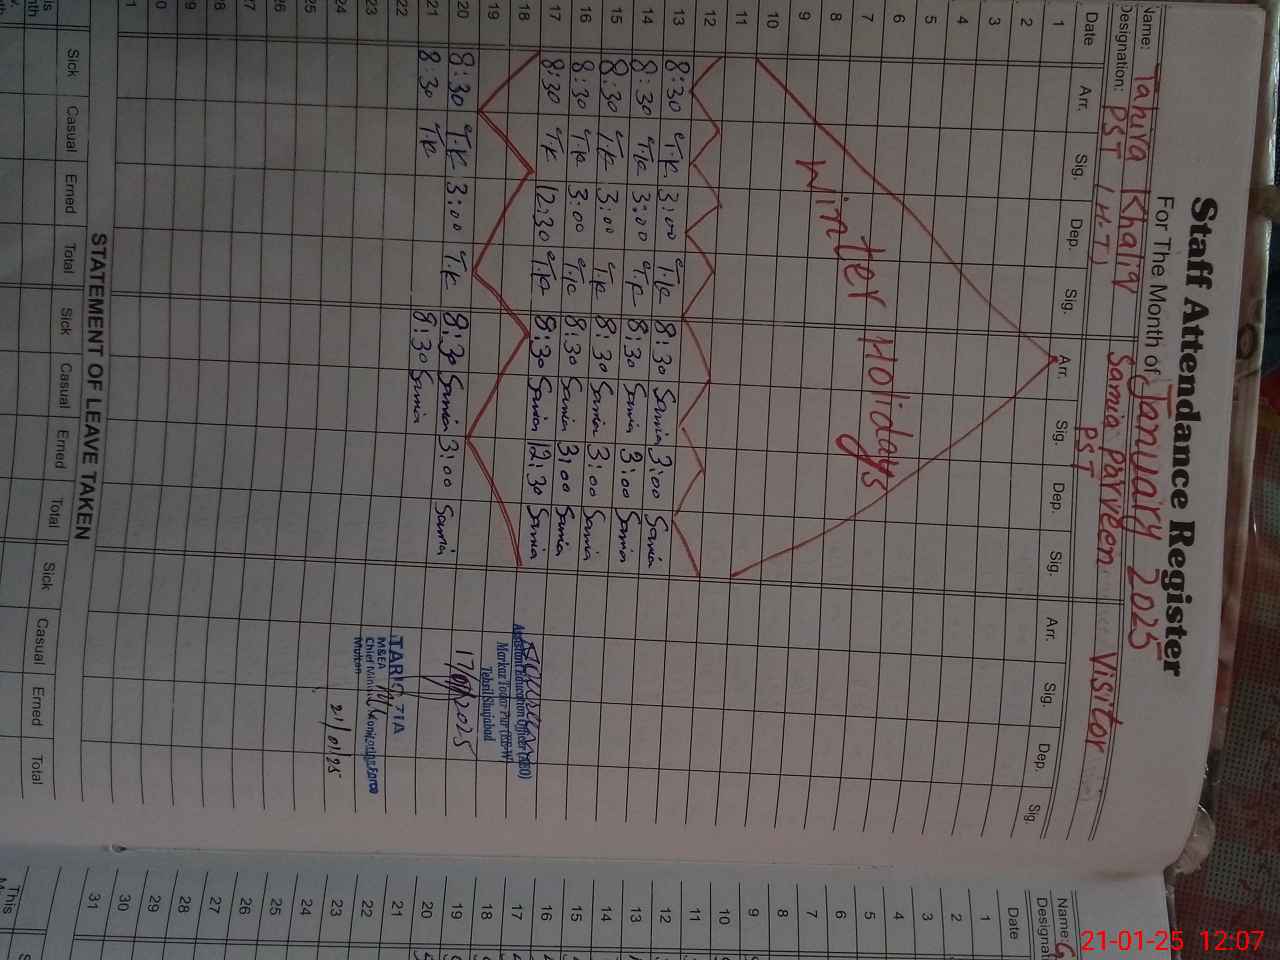 Staff Attendance Register
For The Month of January 2025
Name: Tahira Khaliq Samia Parveen Visitor
Designation: PST (H.T) PST
Date Arr. Sig. Dep. Sig. Arr. Sig. Dep. Sig. Arr. Sig. Dep. Sig.
1
2
3
4
5
6
7
8
9
10
11
Winter Holidays
12
13 8:30 T.K 3:00 T.K 8:30 Samia 3:00 Samia
14 8:30 T.K 3:00 T.K 8:30 Samia 3:00 Samia
15 8:30 T.K 3:00 T.K 8:30 Samia 3:00 Samia
16 8:30 T.K 3:00 T.K 8:30 Samia 3:00 Samia
17 8:30 T.K 12:30 T.K 8:30 Samia 12:30 Samia
18
19
20 8:30 T.K 3:00 T.K 8:30 Samia 3:00 Samia
21 8:30 T.K 8:30 Samia
22
23
24
25
26
27
28
29
30
31
Assistant Education Officer (AEO)
Tehsil Shujabad
17/01/2025
TARIQ ZIA
M&EA
Chief Minister Monitoring Force
Multan
21/01/25
STATEMENT OF LEAVE TAKEN
Sick Casual Erned Total Sick Casual Erned Total Sick Casual Erned Total
Name: G
Designat
Date
1
2
3
4
5
6
7
8
9
10
11
12
13
14
15
16
17
18
19
20
21
22
23
24
25
26
27
28
29
30
31
This
21-01-25 12:07